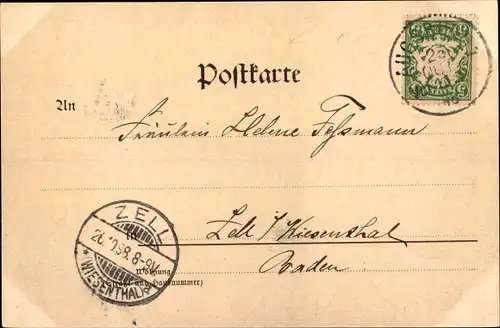 Postkarte
An
Fräulein Helene Feßmann
Zell i/ Wiesenthal
Baden
ZELL
8-9V.
*(WIESENTHAL)*
Wohnung
und Hausnummer)